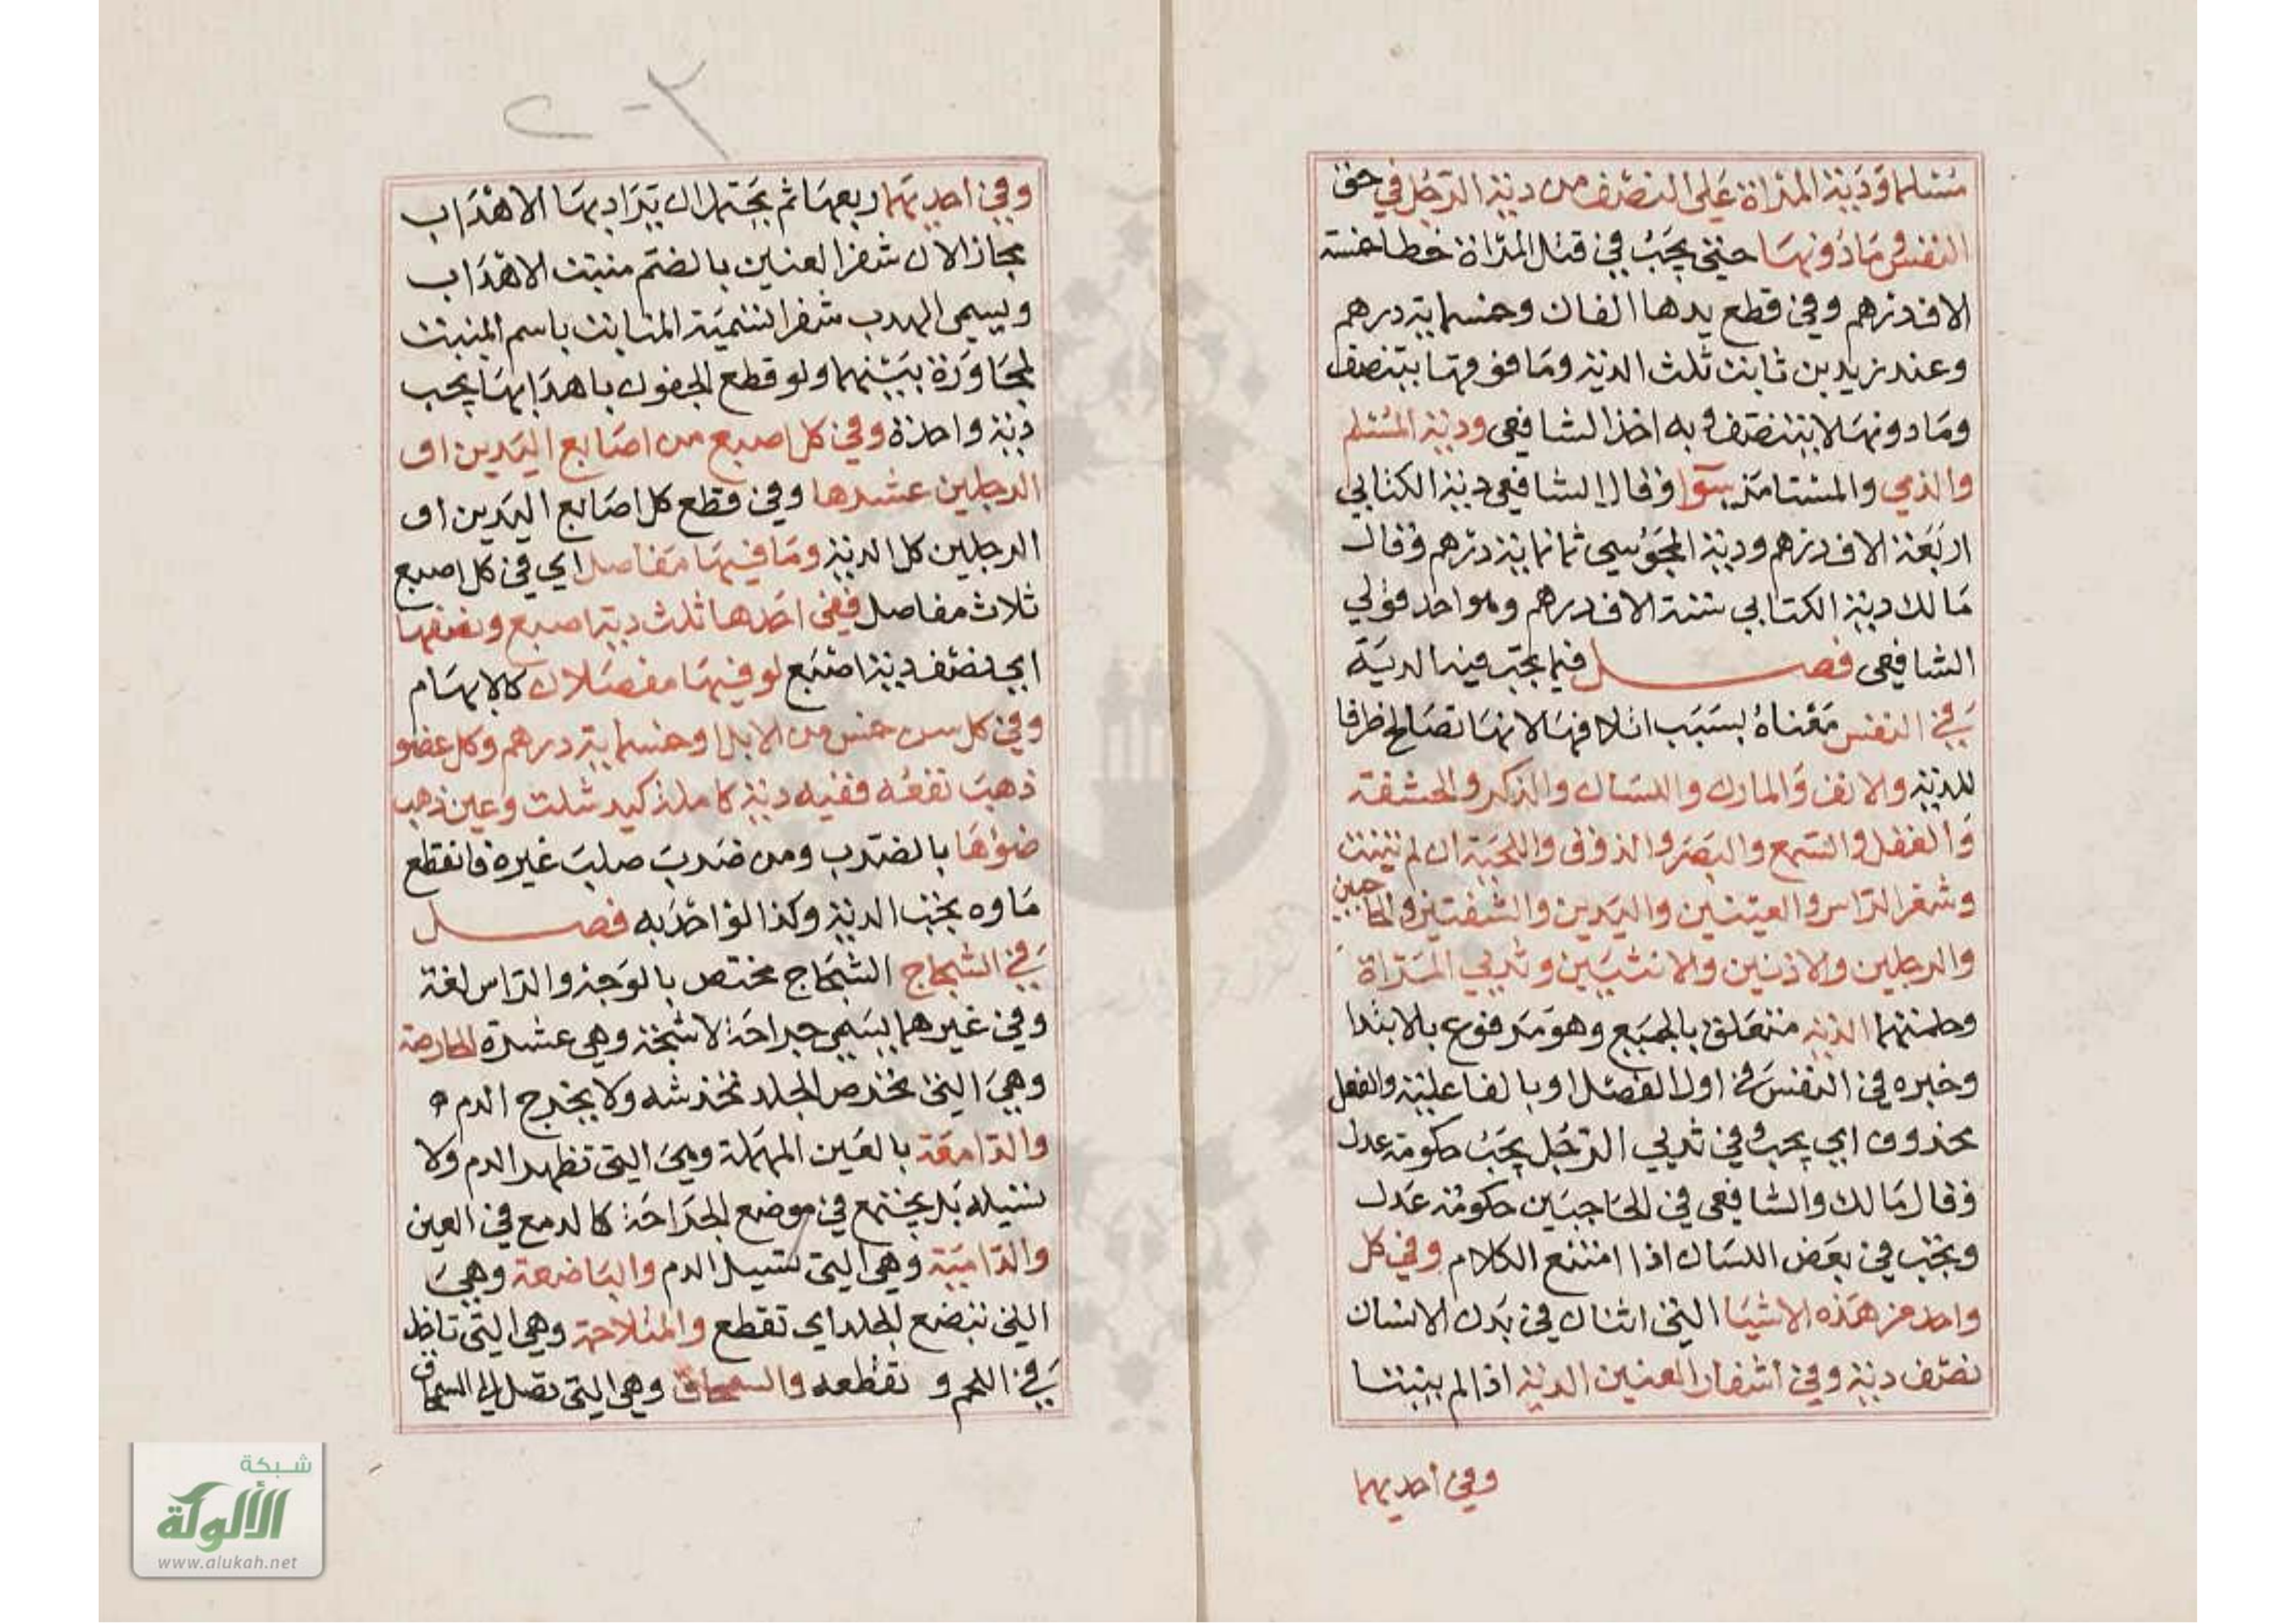 مسلما ودية المراة على النصف من دية الرجل في حق
النفس وما دونها حتى يجب في قتل المراة خطا خمسة
الاف درهم وفي قطع يدها الفان وخمسماية درهم
وعند زيد بن ثابت ثلث الدية وما فوقها يتنصف
وما دونها لا يتنصف وبه اخذ الشافعي ودية المسلم
والذمي والمستامن سوآ وقال الشافعي دية الكتابي
اربعة الاف درهم ودية المجوسي ثمانماية درهم وقال
مالك دية الكتابي ستة الاف درهم وهو احد قولي
الشافعي فصل فيما يجب فيه الدية
في النفس معناه بسبب اتلافها لانها تصالح ظرفا
للدية والانف والمارن واللسان والذكر والحشفة
والعقل والسمع والبصر والذوق واللحية ان لم تنبت
وشعر الراس والعينين واليدين والشفتين والحاجبين
والرجلين والاذنين والانثيين وثديي المراة
وحلمتهما الدية متعلق بالجميع وهو مرفوع بالابتدا
وخبره في النفس في اول الفصل او بالفاعلية والفعل
محذوف اي يجب وفي ثديي الرجل يجب حكومة عدل
وقال مالك والشافعي في الحاجبين حكومة عدل
ويجب في بعض اللسان اذا امتنع الكلام وفي كل
واحد من هذه الاشيا التي اثنان في بدن الانسان
نصف دية وفي اشفار العينين الدية اذا لم ينبتا
وفي احديهما
وفي احديهما ربعها ثم يحتمل ان يراد بها الاهداب
مجازا لان شفر العينين بالضم منبت الاهداب
ويسمى الهدب شفرا تسمية النابت باسم المنبت
لمجاورة بينهما ولو قطع الجفون باهدابها يجب
دية واحدة وفي كل اصبع من اصابع اليدين او
الرجلين عشرها وفي قطع كل اصابع اليدين او
الرجلين كل الدية وما فيها مفاصل اي في كل اصبع
ثلاث مفاصل ففي احدها ثلث دية اصبع ونصفها
اي نصف دية اصبع لو فيها مفصلان كالابهام
وفي كل سن خمس من الابل او خمسماية درهم وكل عضو
ذهب نفعه ففيه دية كاملة كيد شلت وعين ذهب
ضوؤها بالضرب ومن ضرب صلب غيره فانقطع
ماوه يجب الدية وكذا لو احدبه فصل
في الشجاج الشجاج مختص بالوجه والراس لغة
وفي غيرهما يسمى جراحة لا شجة وهي عشرة الحارصة
وهي التي تخرص الجلد تخدشه ولا يخرج الدم ه
والدامعة بالعين المهملة وهي التي تظهر الدم ولا
تسيله بل يجتمع في موضع الجراحة كالدمع في العين
والدامية وهي التي تسيل الدم والباضعة وهي
التي تبضع الجلد اي تقطع والمتلاحمة وهي التي تاخذ
في اللحم و تقطعه والسمحاق وهي التي تصل الى السمحاق
شبكة
الألوكة
www.alukah.net